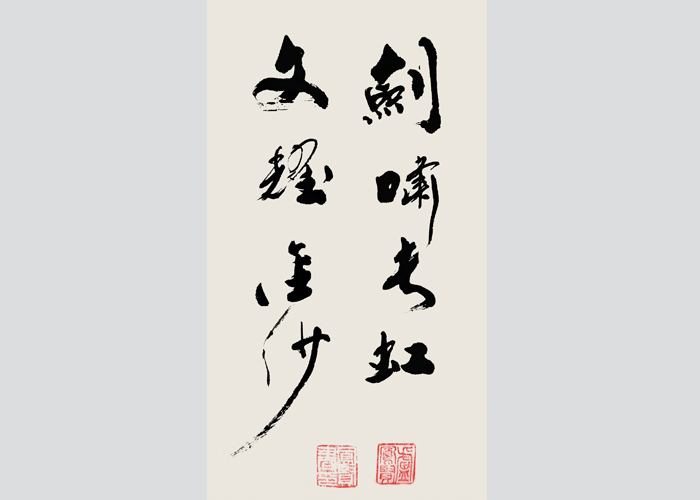 劍嘯長虹
文耀金沙